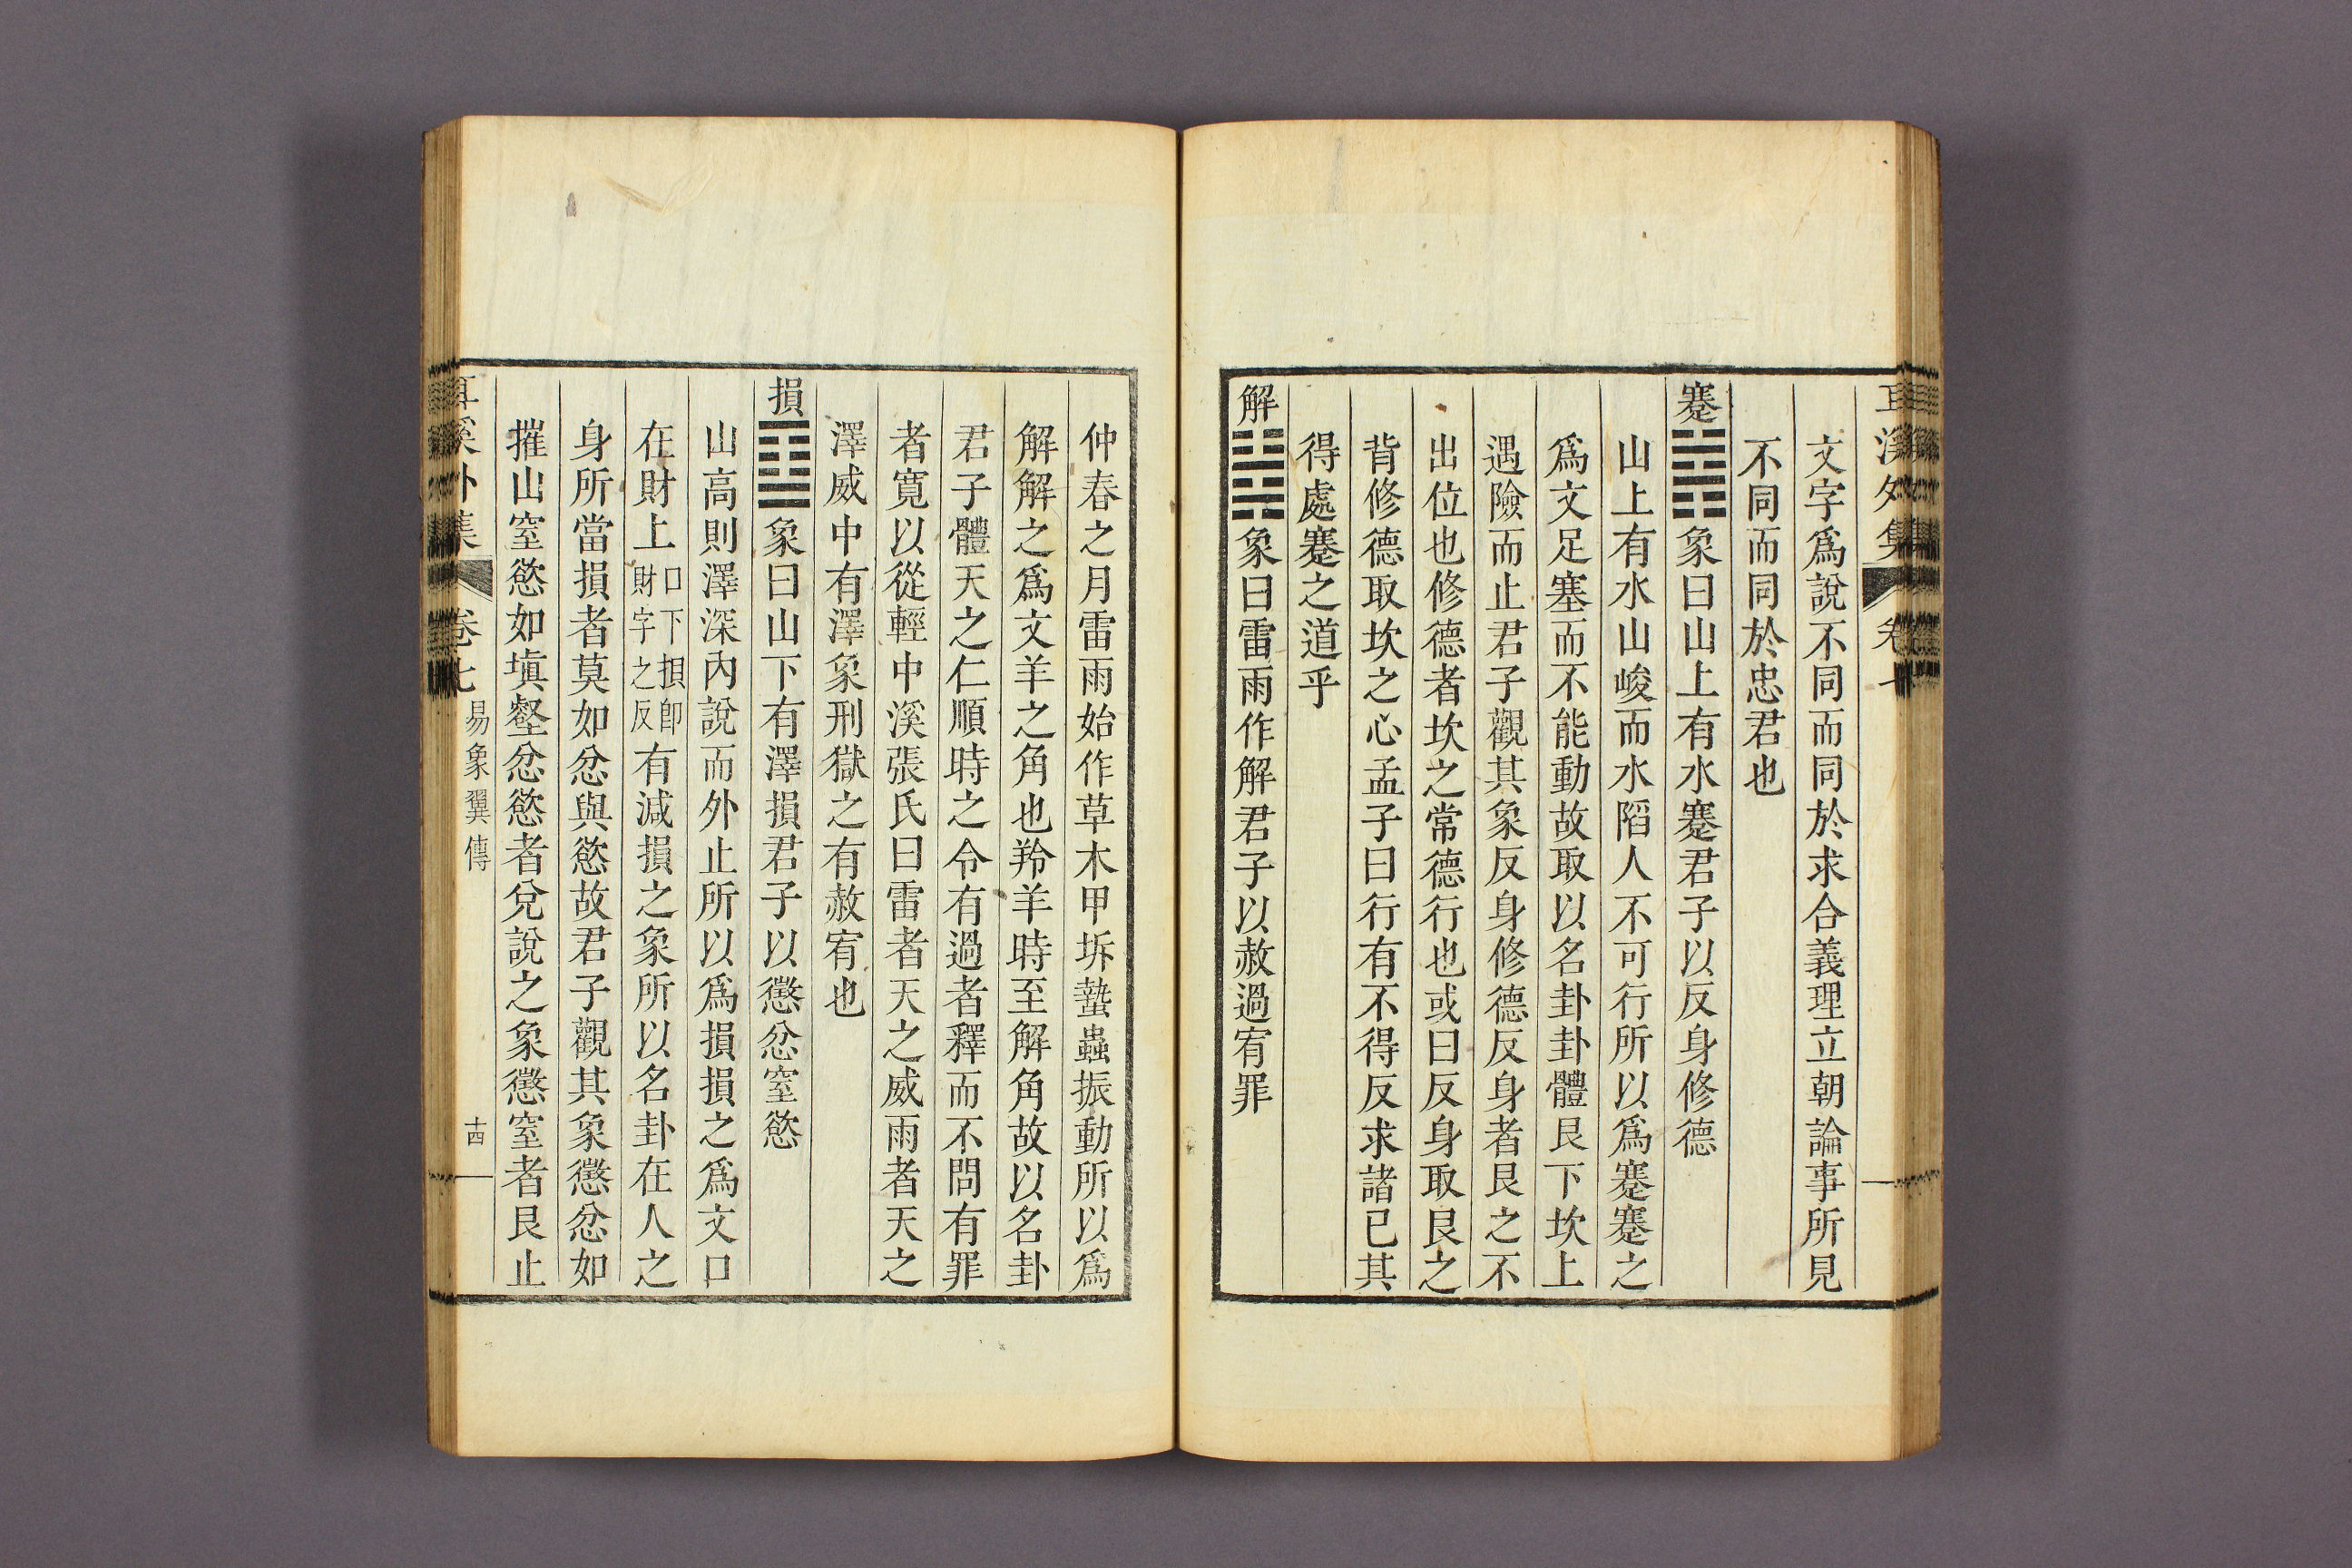 文字爲說不同而同於求合義理立朝論事所見
不同而同於忠君也
蹇䷦象曰山上有水蹇君子以反身修德
山上有水山峻而水陷人不可行所以爲蹇蹇之
爲文足塞而不能動故取以名卦卦體艮下坎上
遇險而止君子觀其象反身修德反身者艮之不
出位也修德者坎之常德行也或曰反身取艮之
背修德取坎之心孟子曰行有不得反求諸已其
得處蹇之道乎
解䷧象曰雷雨作解君子以赦過宥罪
仲春之月雷雨始作草木甲坼蟄蟲振動所以爲
解解之爲文羊之角也羚羊時至解角故以名卦
君子體天之仁順時之令有過者釋而不問有罪
者寬以從輕中溪張氏曰雷者天之威雨者天之
澤威中有澤象刑獄之有赦宥也
損䷨象曰山下有澤損君子以懲忿窒慾
山高則澤深內說而外止所以爲損損之爲文口
在財上口下損卽財字之反有減損之象所以名卦在人之
身所當損者莫如忿與慾故君子觀其象懲忿如
摧山窒慾如塡壑忿慾者兌說之象懲窒者艮止
耳溪外集 卷七 易象翼傳 十四